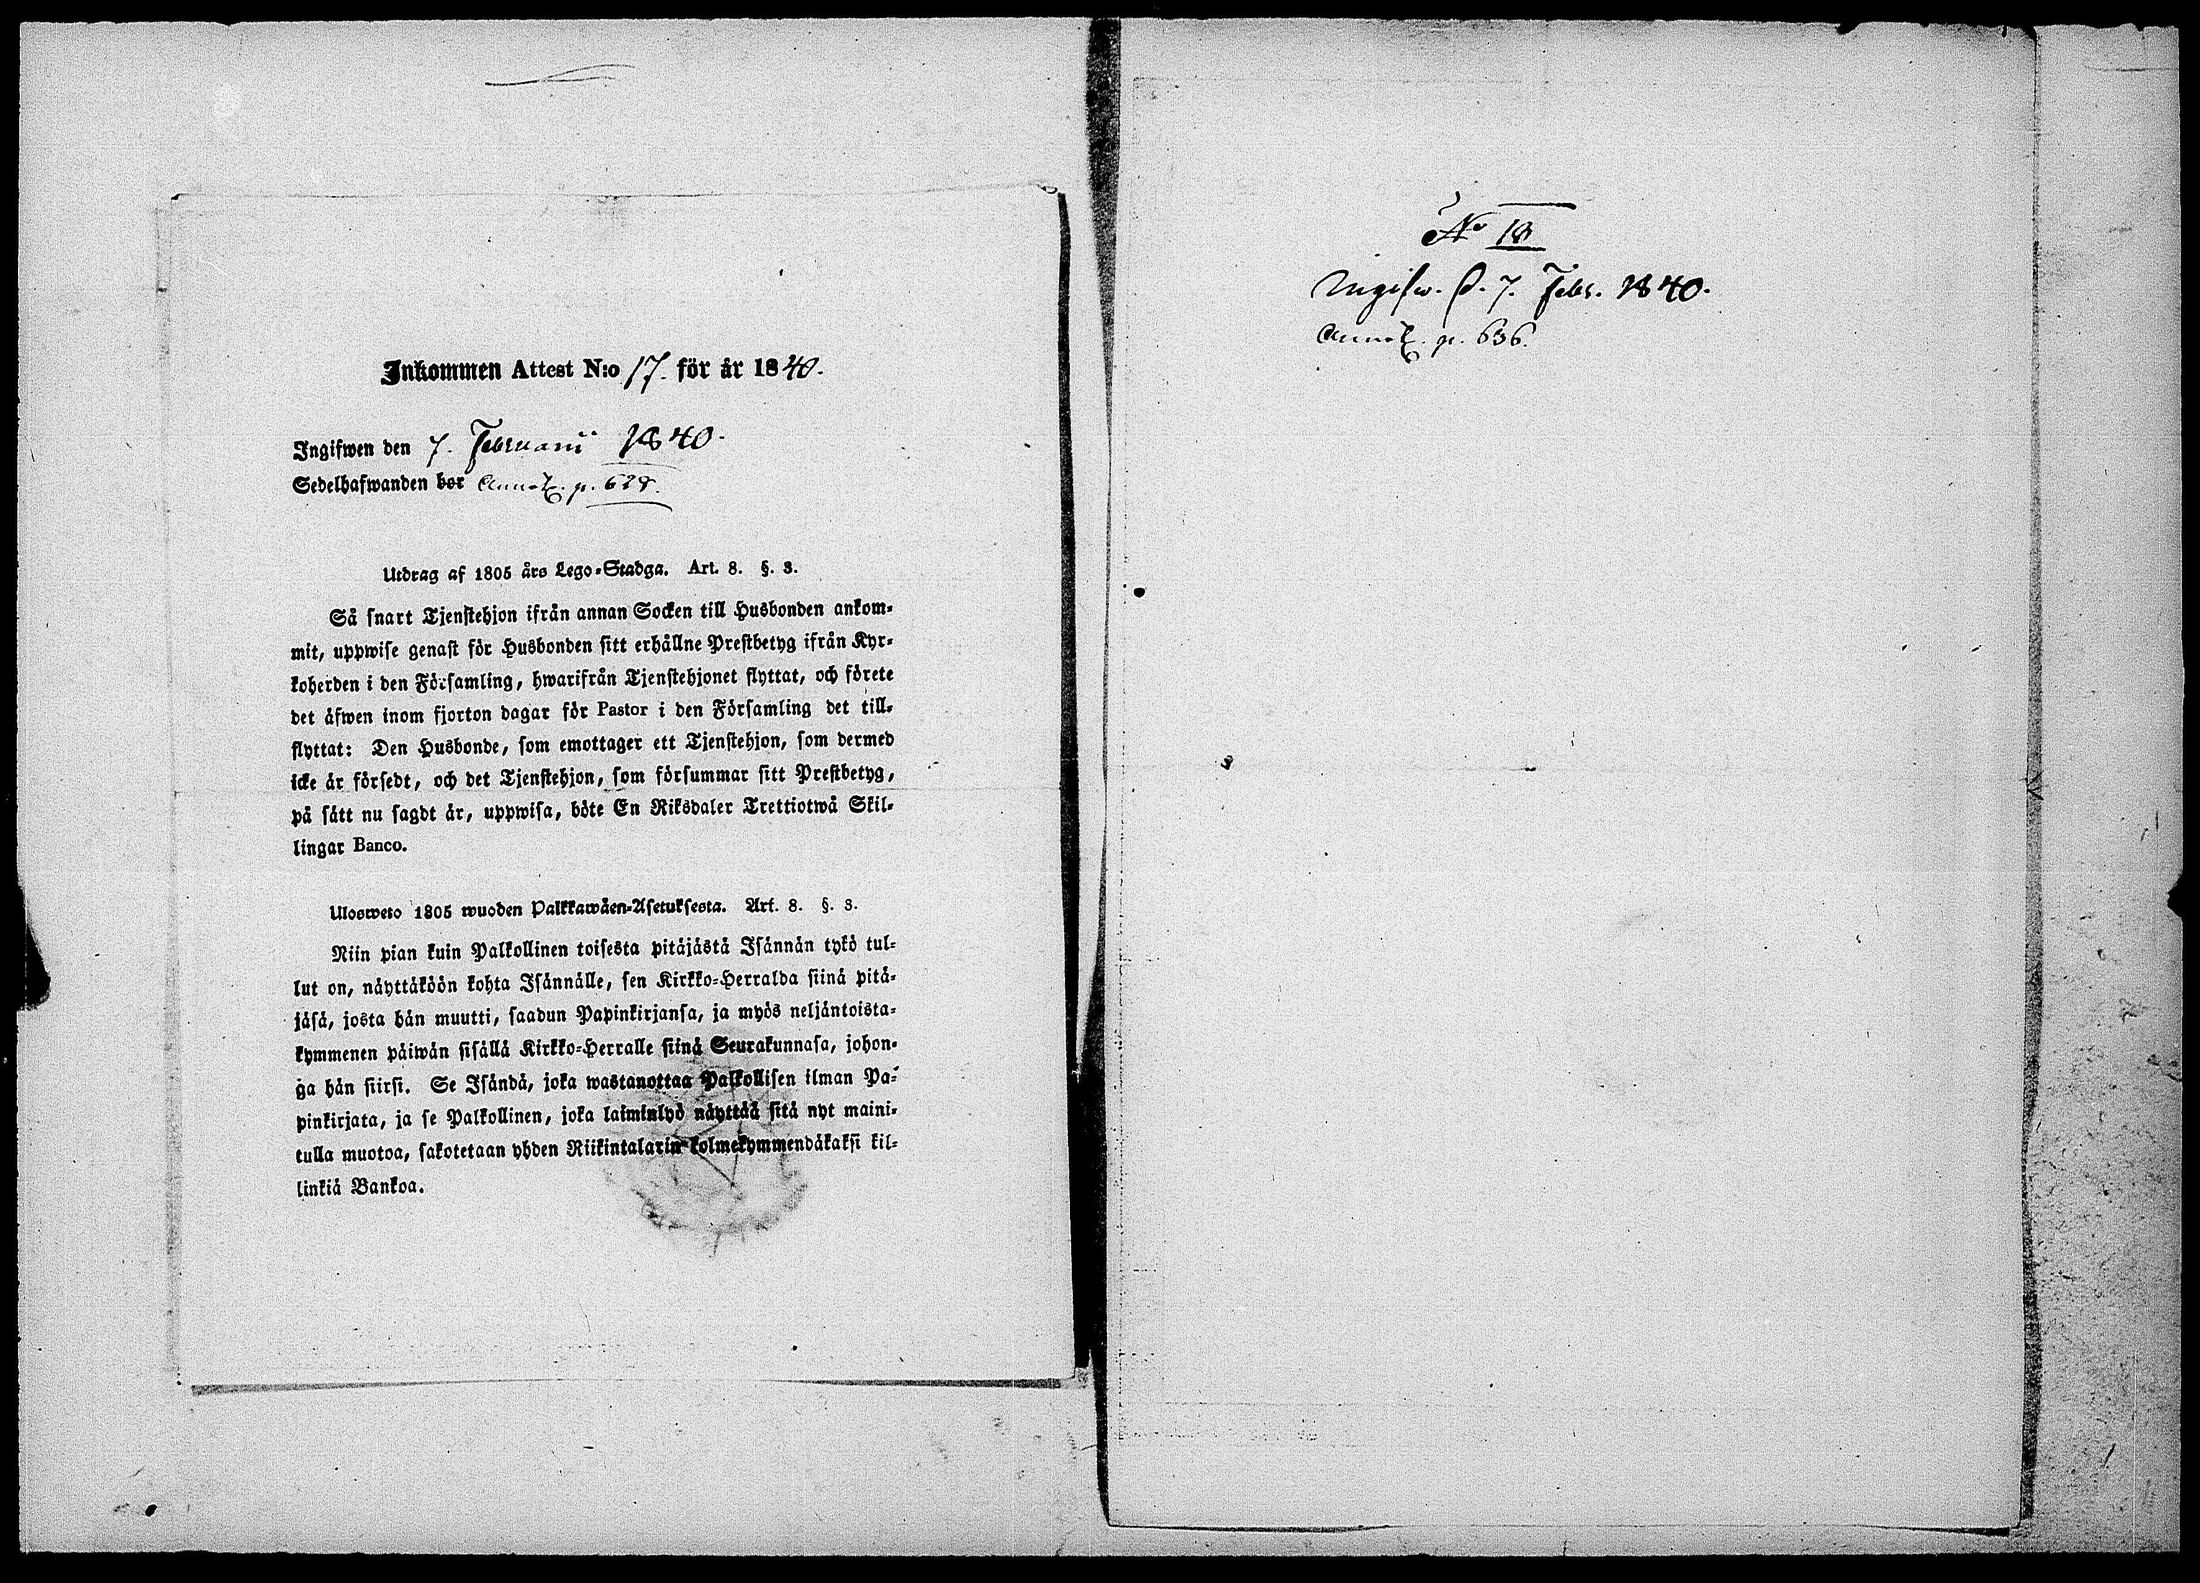 Inkommen Attest N:o 17. för år 1840.
Ingifwen den 7. Februarii 1840.
Sedelhafwanden bor Annot. p. 628.
Utdrag af 1805 års Lego-Stadga. Art. 8. §. 3.
Så snart Tjenstehjon ifrån annan Socken till Husbonden ankom-
mit, uppwise genast för Husbonden sitt erhållne Prestbetyg ifrån Kyr-
koherden i den Församling, hwarifrån Tjenstehjonet flyttat, och förete
det äfwen inom fjorton dagar för Pastor i den Församling det till-
flyttat: Den Husbonde, som emottager ett Tjenstehjon, som dermed
icke är försedt, och det Tjenstehjon, som försummar sitt Prestbetyg,
på sätt nu sagdt är, uppwisa, böte En Riksdaler Trettiotwå Skil-
lingar Banco.
Ulosweto 1805 wuoden Palkkawäen-Asetuksesta. Art. 8. §. 3.
Niin pian kuin Palkollinen toisesta pitäjästä Isännän tykö tul-
lut on, näyttäköön kohta Isännälle, sen Kirkko-Herralda siinä pitä-
jäsä, josta hän muutti, saadun Papinkirjansa, ja myös neljäntoista-
kymmenen päiwän sisällä Kirkko-Herralle siinä Seurakunnasa, johon-
ga hän siirsi. Se Isändä, joka wastanottaa Palkollisen ilman Pa-
pinkirjata, ja se Palkollinen, joka laiminlyö näyttää sitä nyt maini-
tulla muotoa, sakotetaan yhden Riikintalarin kolmekymmendäkaksi kil-
linkiä Bankoa.
No 18
Ingifw. d. 7. Febr. 1840.
Annot. p. 636.